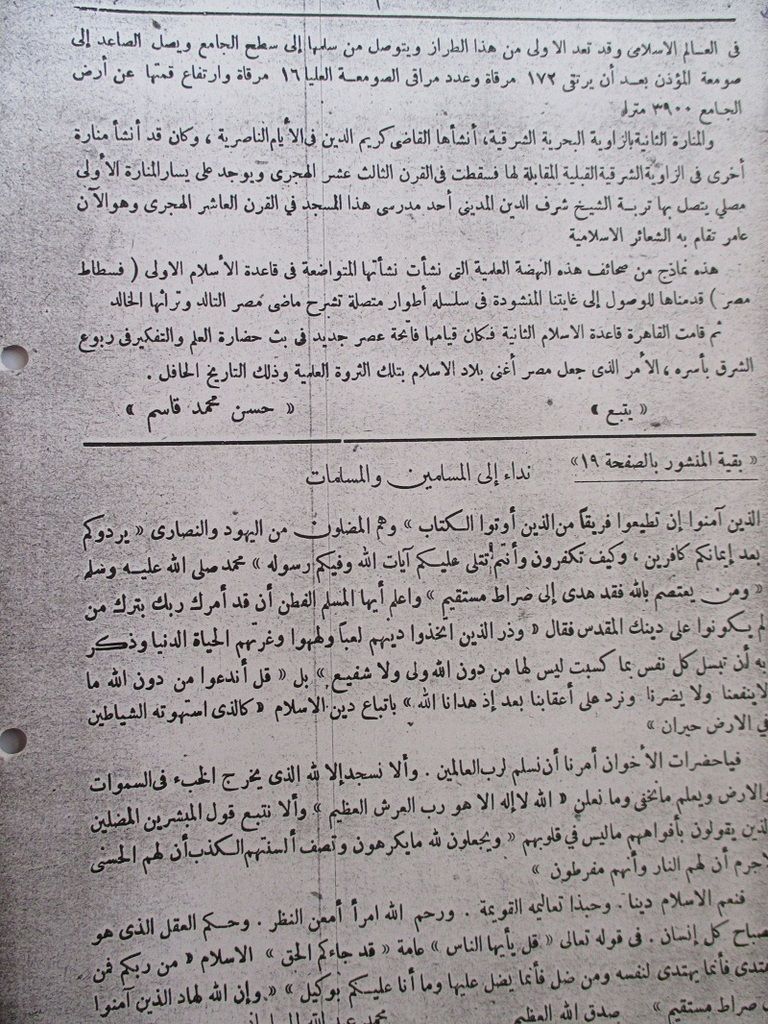 فى العالم الاسلامى وقد تعد الاولى من هذا الطراز ويتوصل من سلمها إلى سطح الجامع ويصل الصاعد إلى
صومعة المؤذن بعد أن يرتقى ١٧٢ مرقاة وعدد مراقى الصومعة العليا ١٦ مرقاة وارتفاع قمتها عن أرض
الجامع ٣٩٠٠ مترا.
والمنارة الثانية بالزاوية البحرية الشرقية، أنشأها القاضى كريم الدين فى الأيام الناصرية ، وكان قد أنشأ منارة
أخرى فى الزاوية الشرقية القبلية المقابلة لها فسقطت فى القرن الثالث عشر الهجرى ويوجد على يسار المنارة الأولى
مصلي يتصل بها تربة الشيخ شرف الدين المدينى أحد مدرسى هذا المسجد في القرن العاشر الهجرى وهو الآن
عامر تقام به الشعائر الاسلامية
هذه نماذج من صحائف هذه النهضة العلمية التى نشأت نشأتها المتواضعة فى قاعدة الأسلام الاولى ( فسطاط
مصر ) قدمناها للوصول إلى غايتنا المنشودة فى سلسله أطوار متصلة تشرح ماضى مصر التالد وتراثها الخالد
ثم قامت القاهرة قاعدة الاسلام الثانية فكان قيامها فاتحة عصر جديد فى بث حضارة العلم والتفكير فى ربوع
الشرق بأسره ، الأمر الذى جعل مصر أغنى بلاد الاسلام بتلك الثروة العلمية وذلك التاريخ الحافل .
« يتبع » « حسن محمد قاسم »
« بقية المنشور بالصفحة ١٩» نداء إلى المسلمين والمسلمات
الذين آمنوا إن تطيعوا فريقاً من الذين أوتوا الكتاب » وهم المضلون من اليهود والنصارى « يردوكم
بعد إيمانكم كافرين ، وكيف تكفرون وأنتم تتلى عليكم آيات الله وفيكم رسوله » محمد صلى الله عليه وسلم
« ومن يعتصم بالله فقد هدى إلى صراط مستقيم » واعلم أيها المسلم الفطن أن قد أمرك ربك بترك من
لم يكونوا على دينك المقدس فقال « وذر الذين اتخذوا دينهم لعباً ولهوا وغرتهم الحياة الدنيا وذكر
به أن تبسل كل نفس بما كسبت ليس لها من دون الله ولى ولا شفيع » بل « قل أندعوا من دون الله ما
لاينفعنا ولا يضرنا ونرد على أعقابنا بعد إذ هدانا الله » باتباع دين الاسلام « كالذى استهوته الشياطين
في الارض حيران »
فياحضرات الأخوان أمرنا أن نسلم لرب العالمين . وألا نسجد إلا لله الذى يخرج الخبء فى السموات
والارض ويعلم ما نخفى وما نعلن « الله لا إله الا هو رب العرش العظيم » وألا نتبع قول المبشرين المضلين
الذين يقولون بأفواههم ماليس في قلوبهم « ويجعلون لله ما يكرهون وتصف ألسنتهم الكذب أن لهم الحسنى
لاجرم أن لهم النار وأنهم مفرطون »
فنعم الاسلام دينا . وحبذا تعاليمه القويمة . ورحم الله امرأ أمعن النظر . وحكم العقل الذى هو
مصباح كل إنسان . فى قوله تعالى « قل يأيها الناس » عامة « قد جاءكم الحق » الاسلام « من ربكم فمن
اهتدى فأنما يهتدى لنفسه ومن ضل فأنما يضل عليها وما أنا عليكم بوكيل » « وإن الله لهاد الذين آمنوا
صراط مستقيم » صدق الله العظيم محمد عبد الله